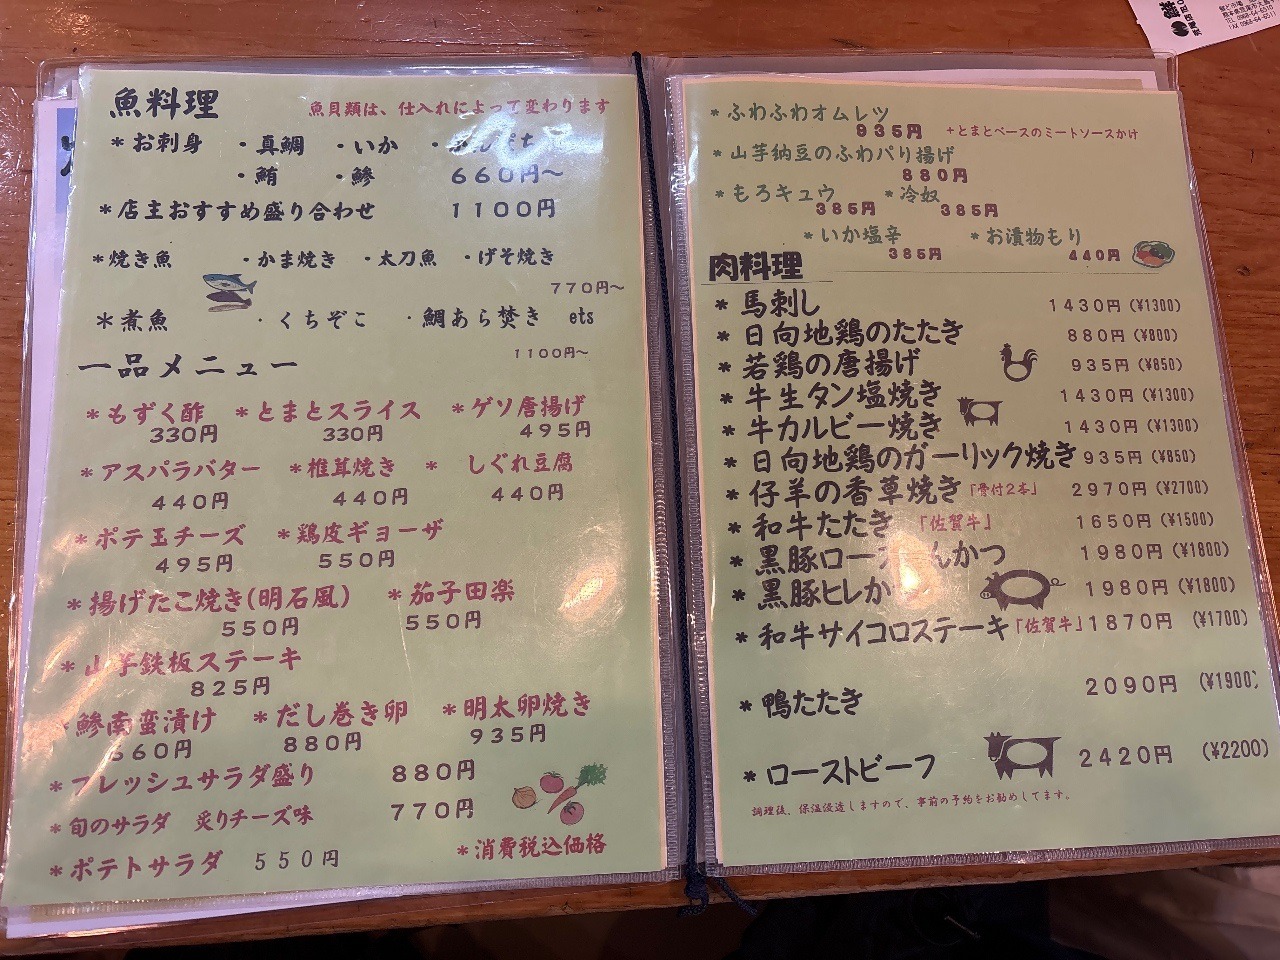 魚料理
魚貝類は、仕入れによって変わります
＊お刺身 ・真鯛 ・いか
・鮪 ・鯵 660円～
＊店主おすすめ盛り合わせ 1100円
＊焼き魚 ・かま焼き ・太刀魚 ・げそ焼き
770円～
＊煮魚 ・くちぞこ ・鯛あら焚き ets
1100円～
一品メニュー
＊もずく酢 ＊とまとスライス ＊ゲソ唐揚げ
330円 330円 495円
＊アスパラバター ＊椎茸焼き ＊ しぐれ豆腐
440円 440円 440円
＊ポテ玉チーズ ＊鶏皮ギョーザ
495円 550円
＊揚げたこ焼き(明石風) ＊茄子田楽
550円 550円
＊山芋鉄板ステーキ
825円
鯵南蛮漬け ＊だし巻き卵 ＊明太卵焼き
660円 880円 935円
＊フレッシュサラダ盛り 880円
＊旬のサラダ 炙りチーズ味 770円
＊ポテトサラダ 550円
＊消費税込価格
＊ふわふわオムレツ
935円 +とまとベースのミートソースかけ
＊山芋納豆のふわパリ揚げ
880円
＊もろキュウ ＊冷奴
385円 385円
＊いか塩辛 ＊お漬物もり
385円 440円
肉料理
＊馬刺し 1430円(¥1300)
＊日向地鶏のたたき 880円(¥800)
＊若鶏の唐揚げ 935円(¥850)
＊牛生タン塩焼き 1430円(¥1300)
＊牛カルビー焼き 1430円(¥1300)
＊日向地鶏のガーリック焼き 935円(¥850)
＊仔羊の香草焼き「骨付2本」 2970円(¥2700)
＊和牛たたき 「佐賀牛」 1650円(¥1500)
＊黒豚ロー んかつ 1980円(¥1800)
＊黒豚ヒレか 1980円(¥1800)
＊和牛サイコロステーキ「佐賀牛」1870円 (¥1700)
＊鴨たたき 2090円 (¥1900)
＊ローストビーフ 2420円 (¥2200)
調理後、保温浸透しますので、事前の予約をお勧めしてます。